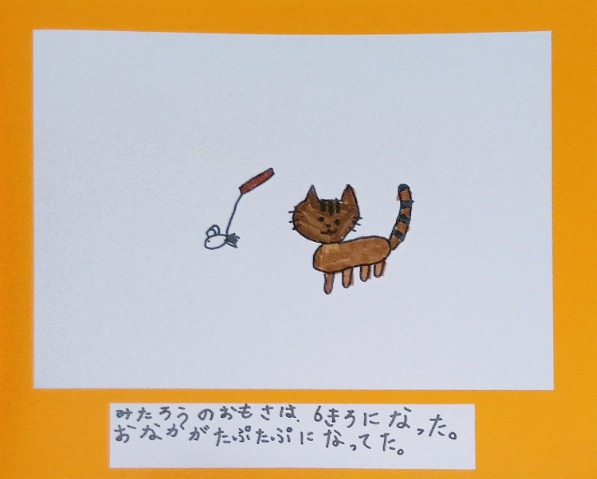 みたろうのおもさは、6きろになった。
おなかがたぷたぷになってた。